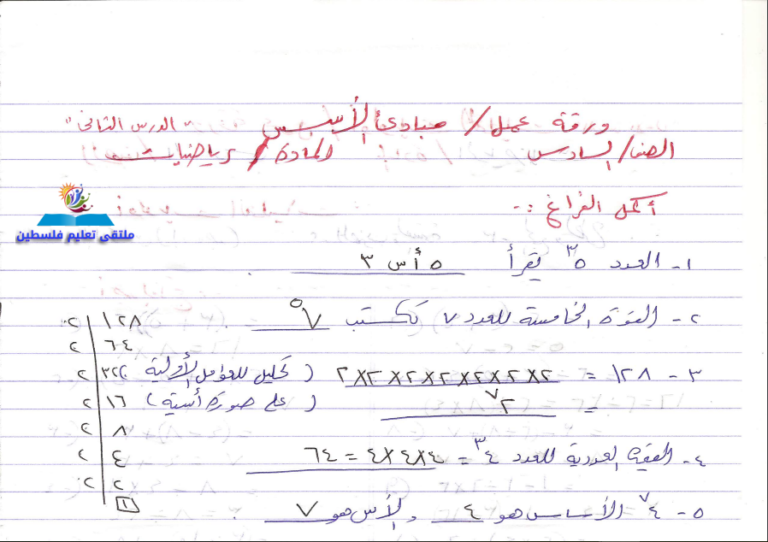 ورقة عمل / مبادئ الأسس "الدرس الثاني"
الصف / السادس المادة / رياضيات
أكمل الفراغ :-
ملتقى تعليم فلسطين
١- العدد ٥³ يقرأ ٥ أس ٣
٢- القوة الخامسة للعدد ٧ تكتب ٧⁵
٣- ١٢٨ = ٢×٢×٢×٢×٢×٢×٢ ( تحليل للعوامل الأولية )
= ٢⁷ ( على صورة أسية )
٤- القيمة العددية للعدد ٤³ = ٤×٤×٤ = ٦٤
٥- ٤⁷ الأساس هو ٤ والأس هو ٧
١٢٨ ٢
٦٤ ٢
٣٢ ٢
١٦ ٢
٨ ٢
٤ ٢
٢ ٢
١